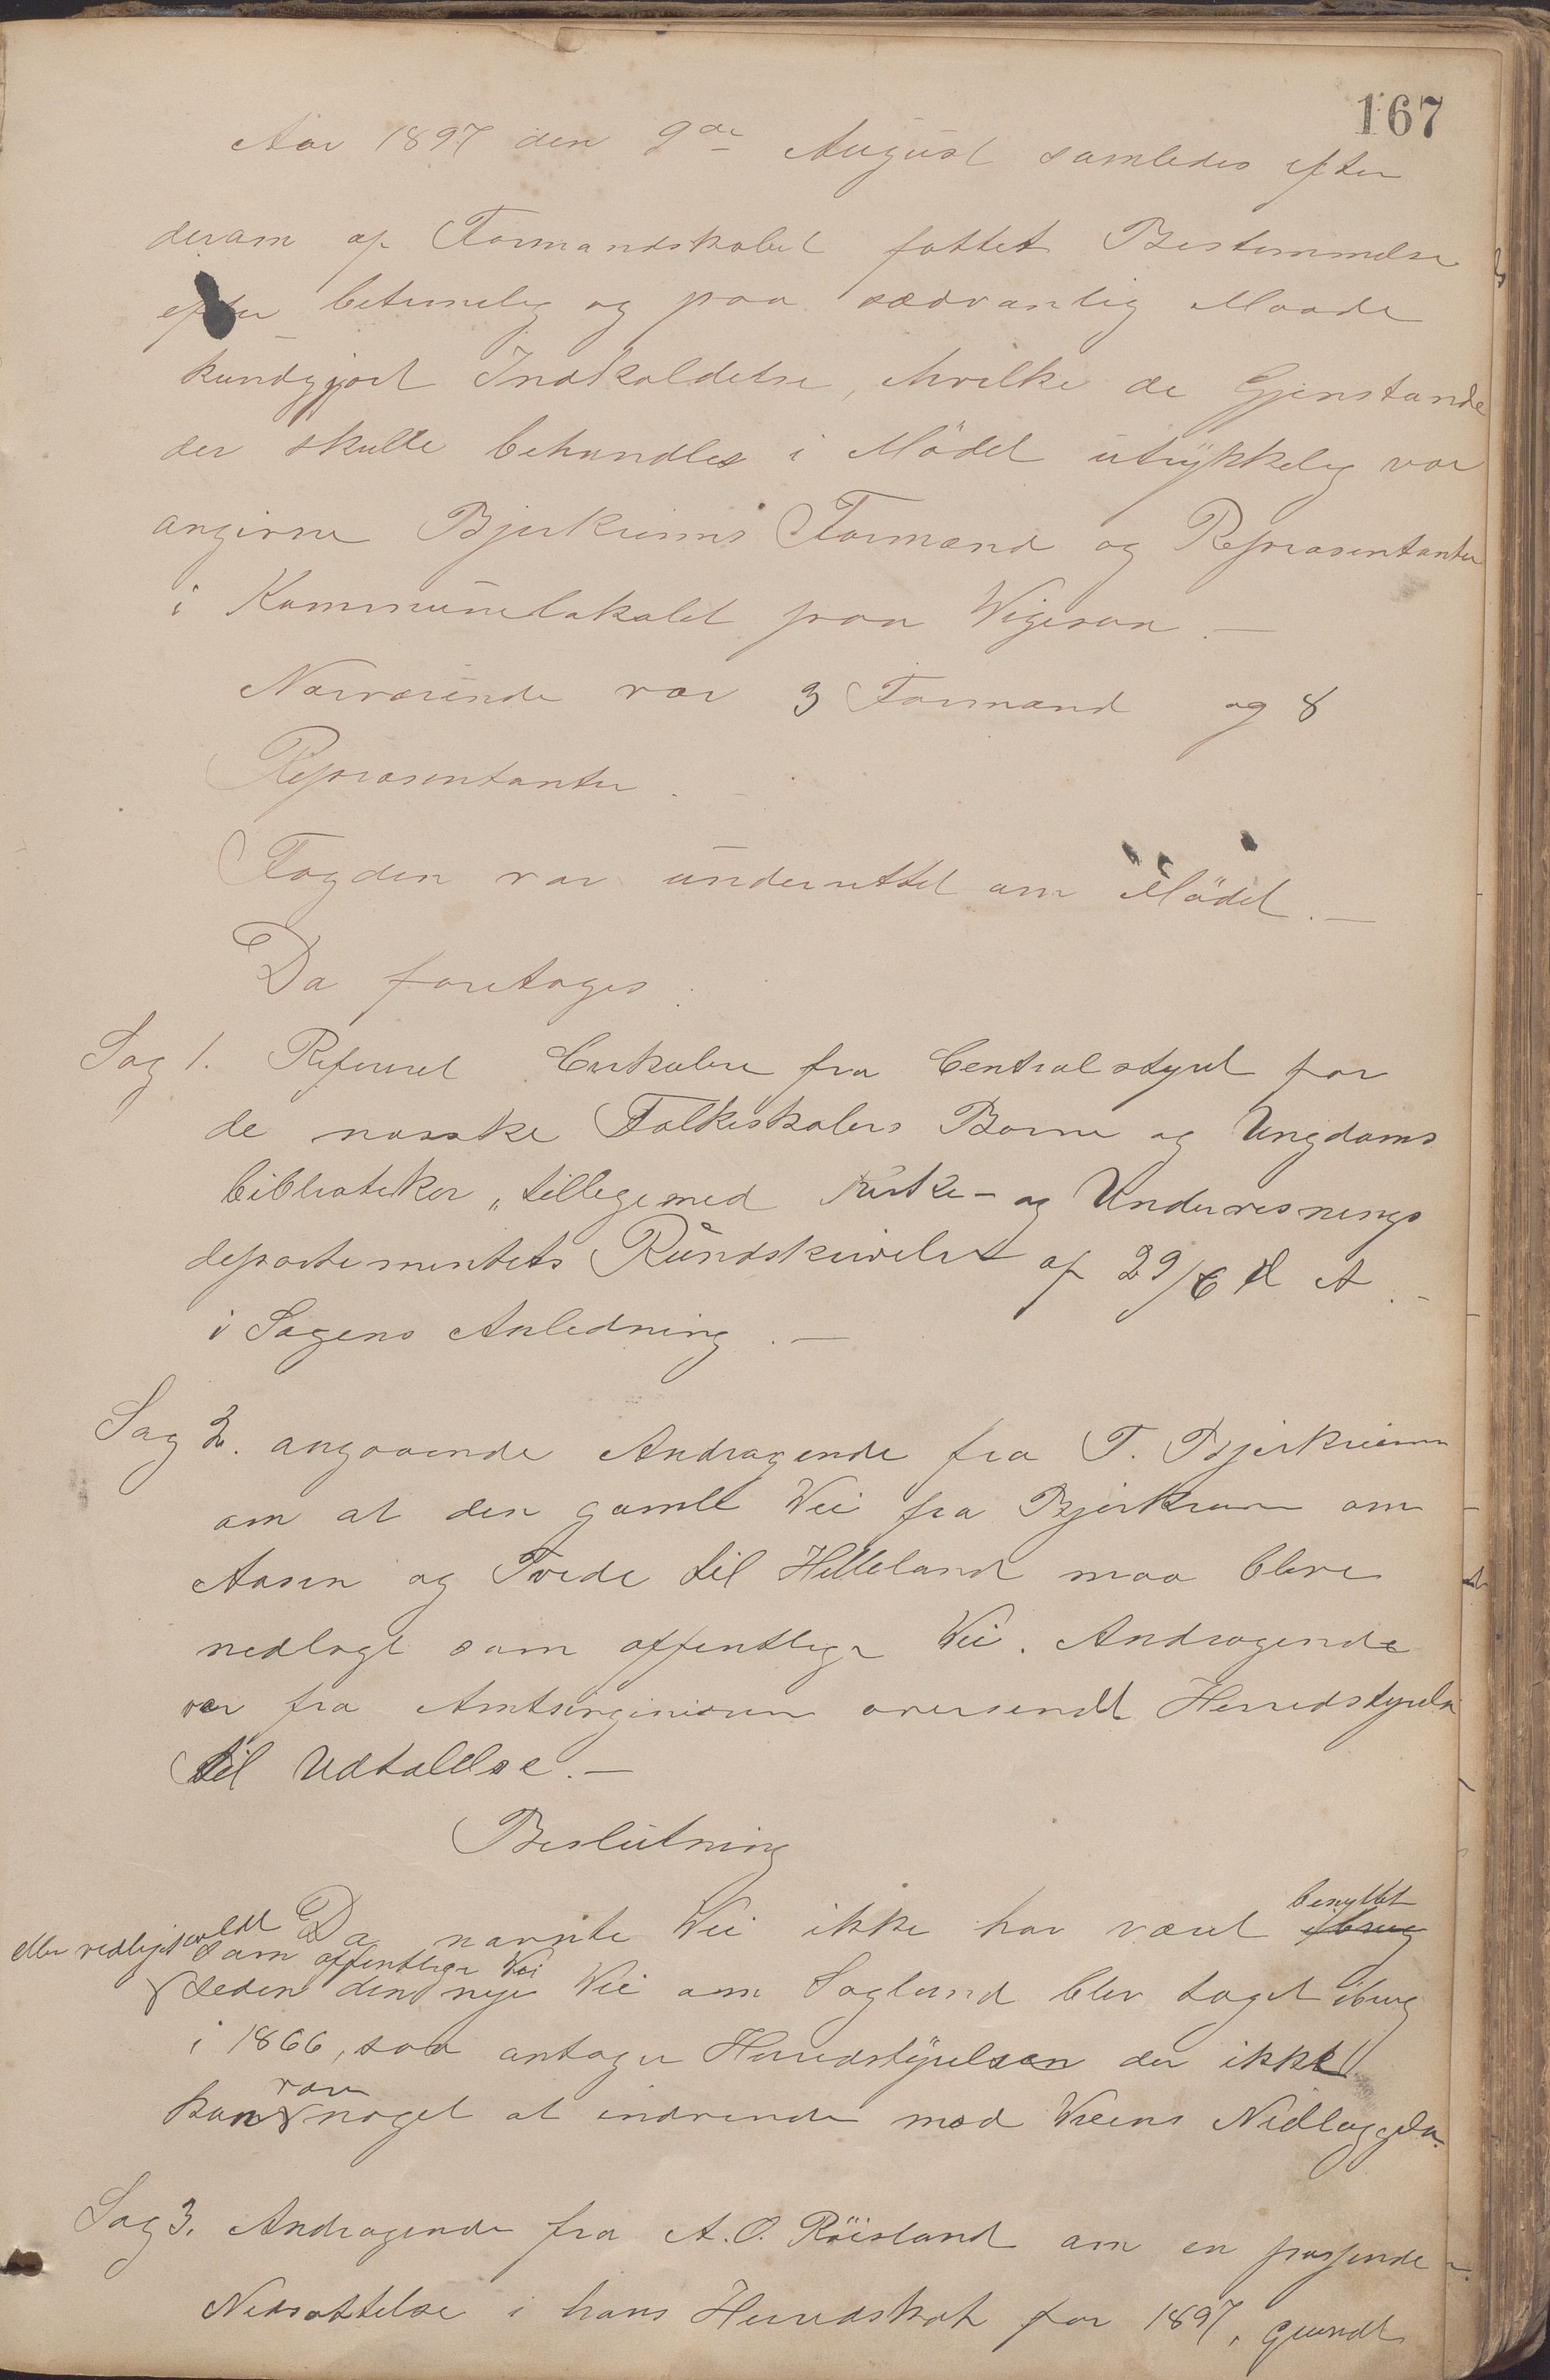 167
Aar 1897 den 9de August samledes efter
derom af Formandskabet fattet Bestemmelse
efter betimelig og paa sædvanlig Maade
kundgjort Indkaldelse, hvilke de Gjenstande
der skulle behandles i Mödet utrykkelig var
angivne Bjerkreims Formænd og Repræsentanter
i Kommunelokalet paa Vigesaa. —
Nærværende var 3 Formænd og 8
Repræsentanter. —
Fogden var underrettet om Mödet. —
Da foretoges.
Sag 1. Refereret Cirkulære fra Centralstyret for
de norske Folkeskolers Barne og Ungdoms
biblioteker, tilligemed Kirke- og Undervisnings
departementets Rundskrivelse af 29/6 d A. -
i Sagens Anledning. —
Sag 2. angaaende Andragende fra T. Bjerkreim
om at den gamle Vei fra Bjerkreim om
Aasen og Tvede til Helleland maa blive
nedlagt som offentlige Vei. Andragende
var fra Amtsingeniören oversendt Herredstyrelsen
til Udtalelse. —
Beslutning
Da nævnte Vei ikke har været ibrug benyttet
eller vedligeholdt som offentlige Vei
siden den nye Vei om Sagland blev taget ibrug
i 1866, saa antager Herredstyrelsen der ikke
kan være noget at indvende mod Veiens Nedlæggelse.
Sag 3. Andragende fra A. O. Röisland om en passende
Nedsættelse i hans Herredskat for 1897, grundt